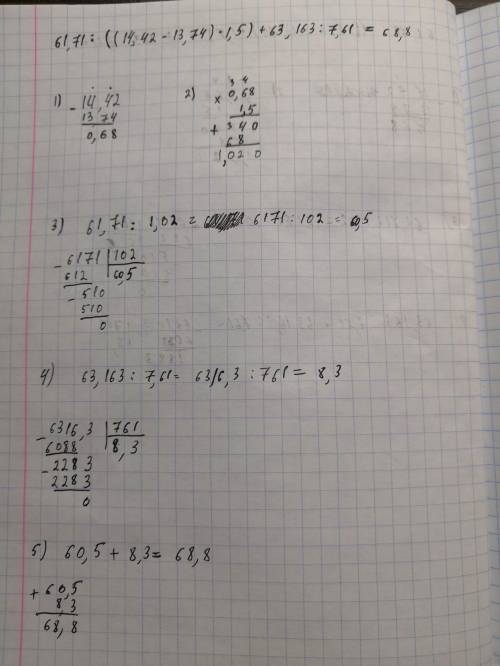 61,71 : ((14,42 - 13,74) · 1,5) + 63,163 : 7,61 = 68,8
1) - 14,42
13 74
0,68
2) 3 4
× 0,68
1,5
+ 3 4 0
6 8
1,02 0
3) 61,71 : 1,02 = 6171 : 102 = 60,5
- 6171 | 102
612 | 60,5
- 510
510
0
4) 63,163 : 7,61 = 6316,3 : 761 = 8,3
- 6316,3 | 761
6088 | 8,3
- 228 3
228 3
0
5) 60,5 + 8,3 = 68,8
+ 60,5
8,3
68,8